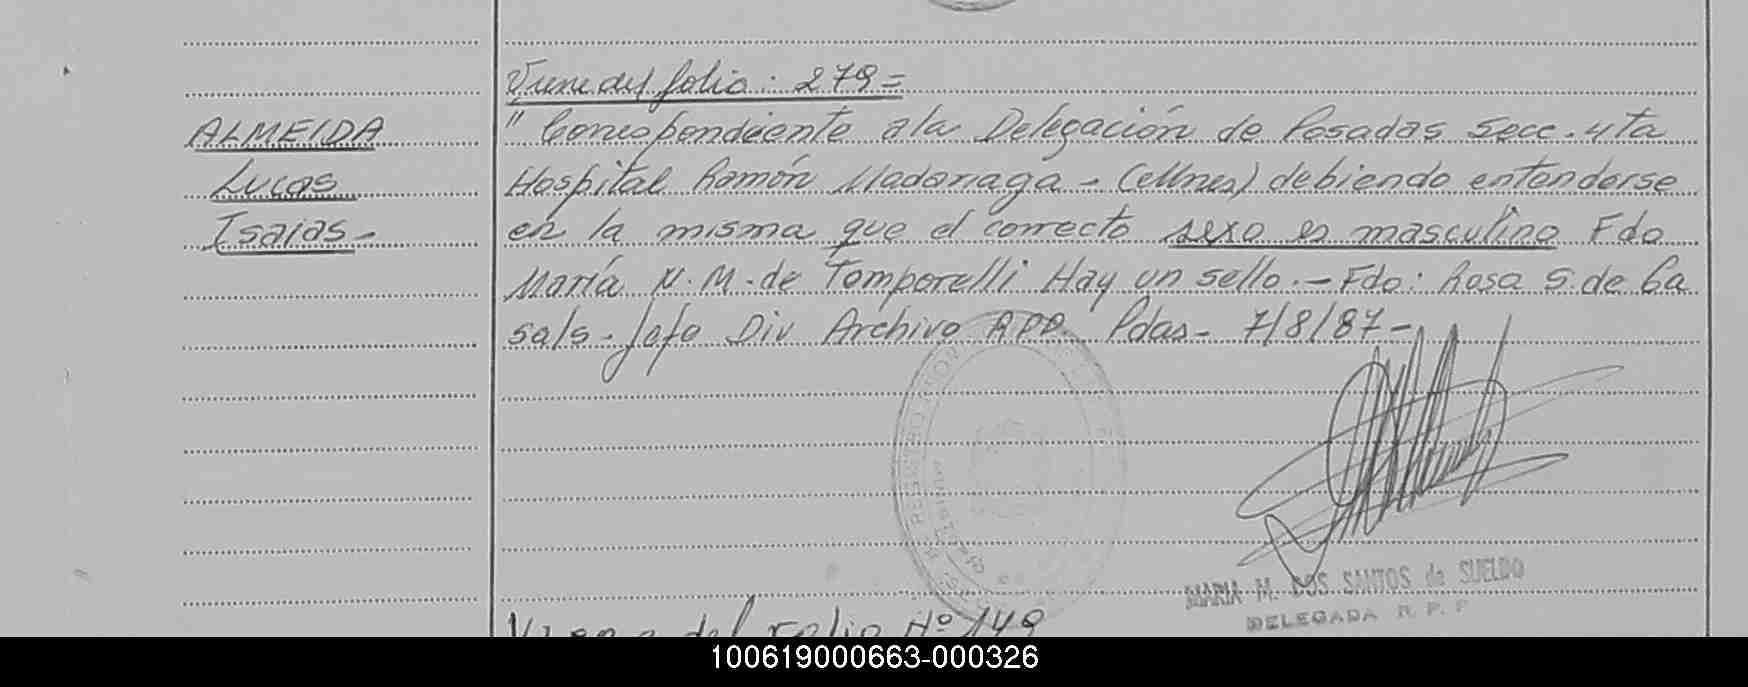 Viene del folio: 279=
ALMEIDA
Lucas
Isaias-
" Correspondiente a la Delegación de Posadas Secc. 4ta
Hospital Ramón Madariaga - (Mnes) debiendo entenderse
en la misma que el correcto sexo es masculino Fdo
María N. M. de Tomporelli Hay un sello.- Fdo: Rosa S. de Ca
sals. Jefe Div Archivo RPP. Pdas- 7/8/87-
MARIA M. DOS SANTOS de SUELDO
DELEGADA R. P. P
Viene del Folio Nº 149
100619000663-000326